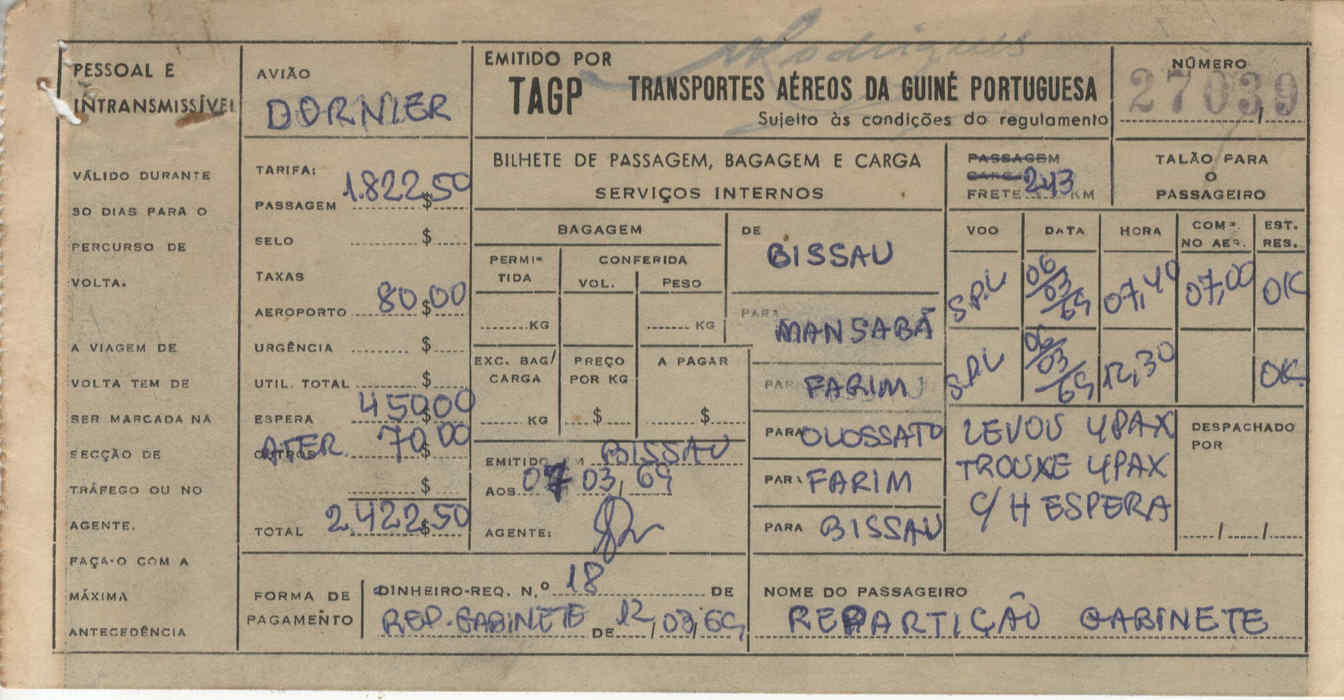 Rodrigues
PESSOAL E
INTRANSMISSÍVEL
VÁLIDO DURANTE
30 DIAS PARA O
PERCURSO DE
VOLTA.
A VIAGEM DE
VOLTA TEM DE
SER MARCADA NA
SECÇÃO DE
TRÁFEGO OU NO
AGENTE.
FAÇA-O COM A
MÁXIMA
ANTECEDÊNCIA
AVIÃO
DORNIER
TARIFA:
PASSAGEM 1.822$50
SELO $
TAXAS
AEROPORTO 80,00
URGÊNCIA $
UTIL. TOTAL $
ESPERA 450$00
OUTROS ATER. 70$00
$
TOTAL 2.422$50
EMITIDO POR
TAGP TRANSPORTES AÉREOS DA GUINÉ PORTUGUESA
Sujeito às condições do regulamento
NÚMERO
27039
BILHETE DE PASSAGEM, BAGAGEM E CARGA
SERVIÇOS INTERNOS
PASSAGEM
CARGA
FRETE 243 KM
TALÃO PARA
O
PASSAGEIRO
BAGAGEM
PERMI-
TIDA
CONFERIDA
VOL. PESO
KG KG
EXC. BAG/
CARGA
PREÇO
POR KG
A PAGAR
KG $ $
EMITIDO EM BISSAU
AOS 07 03, 69
AGENTE:
DE
BISSAU
PARA MANSABÁ
PARA FARIM
PARA OLOSSATO
PARA FARIM
PARA BISSAU
VOO DATA HORA COM.ª NO AER. EST. RES.
S.P.L 06/03/69 07,40 07,00 OK
S.P.L 06/03/69 12,30 OK
LEVOU 4PAX
TROUXE 4PAX
C/H ESPERA
DESPACHADO
POR
/ /
FORMA DE
PAGAMENTO
DINHEIRO-REQ. N.º 18 DE
REP. GABINETE DE 12, 03, 69
NOME DO PASSAGEIRO
REPARTIÇÃO GABINETE